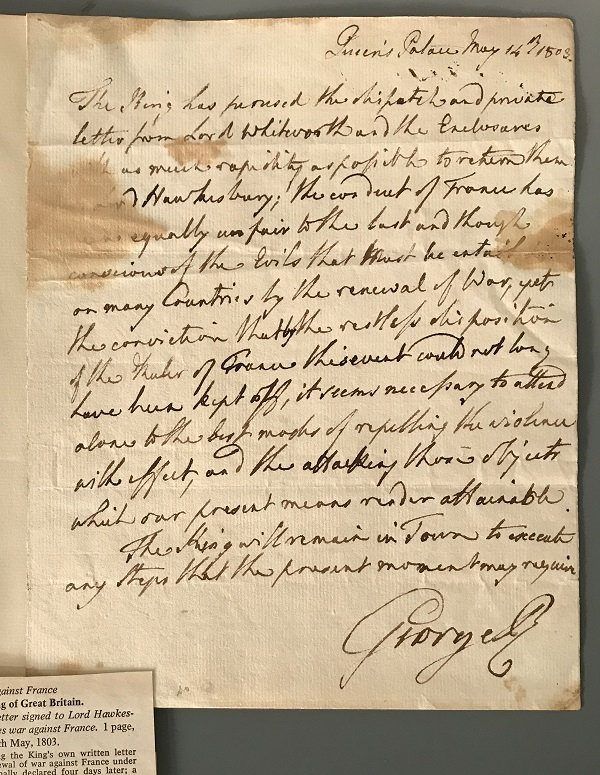 Queen's Palace May 14th 1803.
The King has perused the dispatch and private
letter from Lord Whitworth and the Enclosures
as much rapidity as possible to return them
Hawkesbury; the conduct of France has
equally unfair to the last and though
conscious of the Evils that must be entail
on many Countries by the renewal of War, yet
the conviction that by the restless disposition
of the Ruler of France this event could not long
have been kept off, it seems necessary to attend
alone to the best modes of repelling the violence
with effect, and the attacking those objects
which our present means render attainable.
The King will remain in Town to execute
any Steps that the present moment may require
George R
gainst France
g of Great Britain.
etter signed to Lord Hawkes-
es war against France. 1 page,
th May, 1803.
ng the King's own written letter
ewal of war against France under
nally declared four days later; a